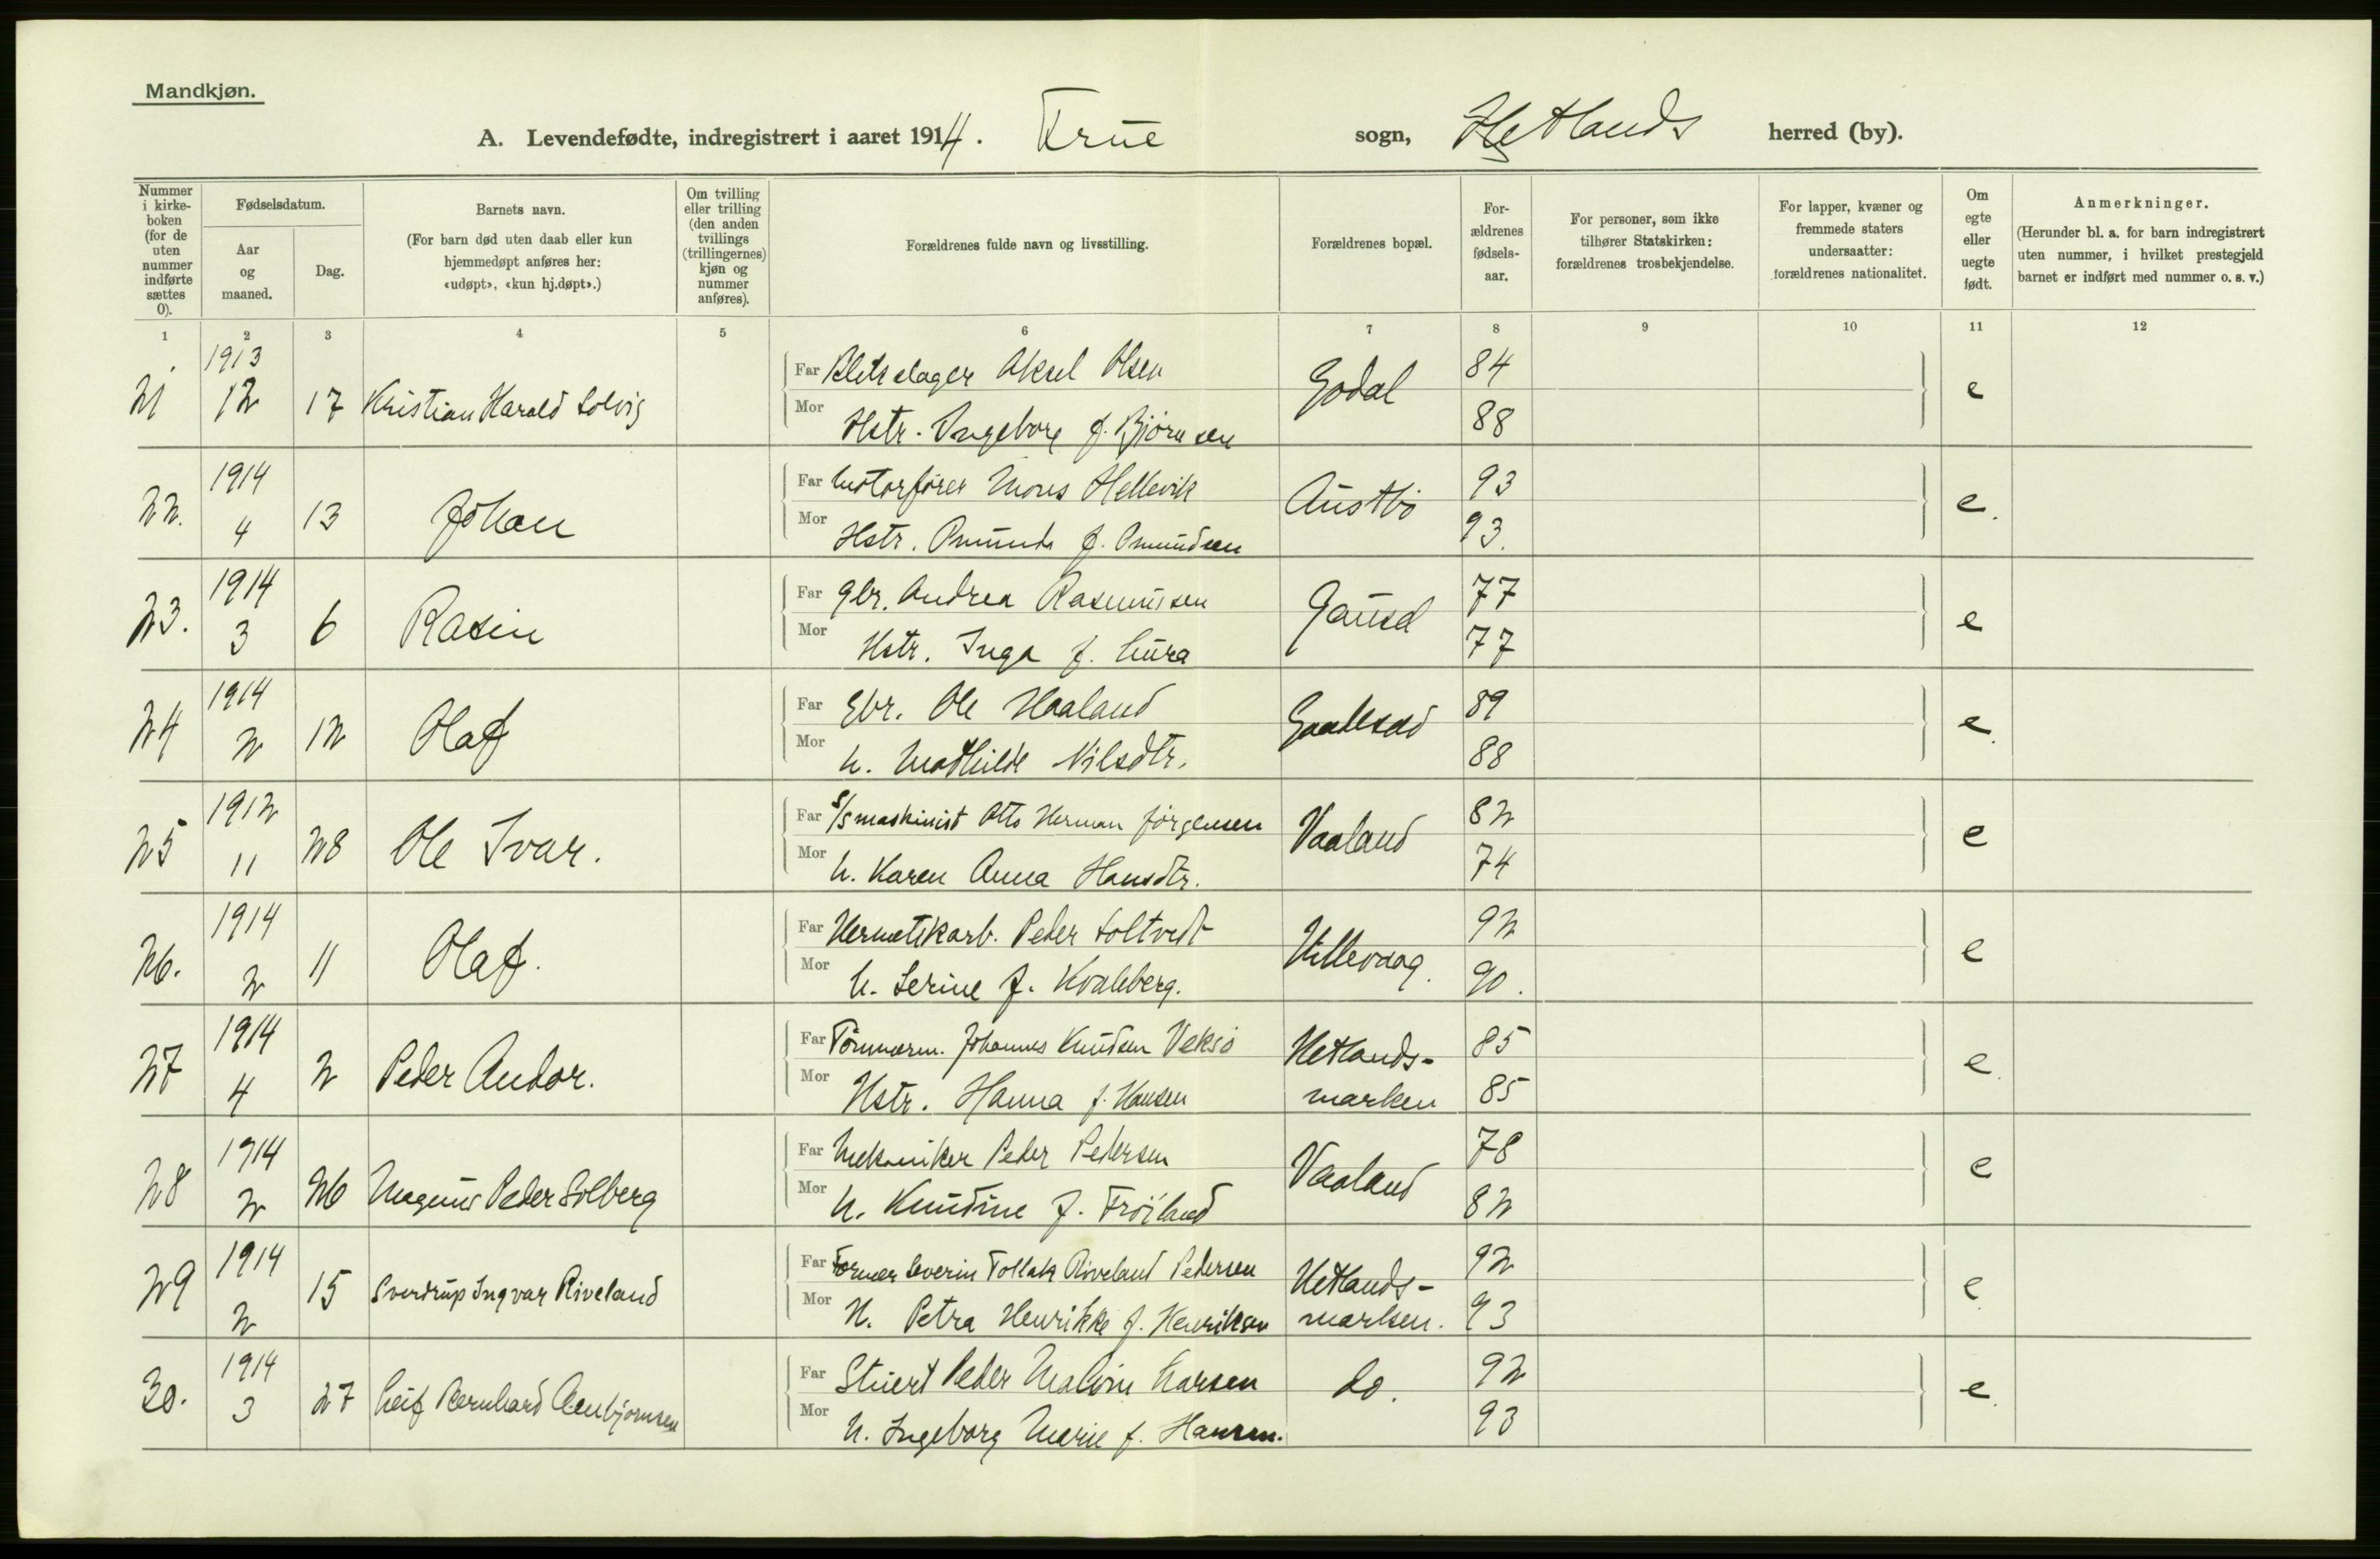 Mandkjøn.
A. Levendefødte, indregistrert i aaret 1914. Frue sogn, Hetlands herred (by).
Nummer i kirke-boken (for de uten nummer indførte sættes 0).
Fødselsdatum.
Aar og maaned.
Dag.
Barnets navn.
(For barn død uten daab eller kun hjemmedøpt anføres her: «udøpt», «kun hj.døpt».)
Om tvilling eller trilling (den anden tvillings (trillingernes) kjøn og nummer anføres).
Forældrenes fulde navn og livsstilling.
Forældrenes bopæl.
For-ældrenes fødsels-aar.
For personer, som ikke tilhører Statskirken: forældrenes trosbekjendelse.
For lapper, kvæner og fremmede staters undersaatter: forældrenes nationalitet.
Om egte eller uegte født.
Anmerkninger.
(Herunder bl. a. for barn indregistrert uten nummer, i hvilket prestegjeld barnet er indført med nummer o. s. v.)
1 2 3 4 5 6 7 8 9 10 11 12
21 1913 12 17 Kristian Harald Solvig Far Bliksslager Aksel Olsen Godal 84 e
Mor Hstr. Ingeborg f. Bjørnsen 88
22. 1914 4 13 Johan Far Motorfører Mons Hellevik Austbø 93 e.
Mor Hstr. f. Omundsen 93.
23. 1914 3 6 Rasin Far Gbr. Andrea Rasmussen Gausel 77 e
Mor Hstr. Inga f. Lura 77
24 1914 2 12 Olaf Far Gbr. Ole Haaland 89 e.
Mor H. Mathilde Nilsdtr. 88
25 1912 11 28 Ole Ivar. Far S/S maskinist Otto Herman Jørgensen Vaaland 82 e
Mor H. Karen Anna Hansdtr. 74
26. 1914 2 11 Olaf. Far Hermetikarb. Peder Soltvedt Hillevaag. 92 e
Mor H. Serine f. Kvaleberg. 90.
27 1914 4 2 Peder Andor. Far Tømmerm. Johannes Knudsen Veksø Hetlands- 85 e.
Mor Hstr. Hanna f. Hansen marken 85
28 1914 2 26 Magnus Peder Solberg Far Mekaniker Peder Pedersen Vaaland 78 e
Mor H. Knudine f. Frøiland 82
29 1914 2 15 Sverdrup Ingvar Riveland Far Former Severin Tollak Riveland Pedersen Hetlands- 92 e.
Mor H. Petra Henrikke f. Henriksen marken. 93
30. 1914 3 27 Leif Bernhard Aenbjørnsen Far Stuert Peder Malvin Larsen do. 92 e.
Mor H. Ingeborg Marie f. Hansen. 93